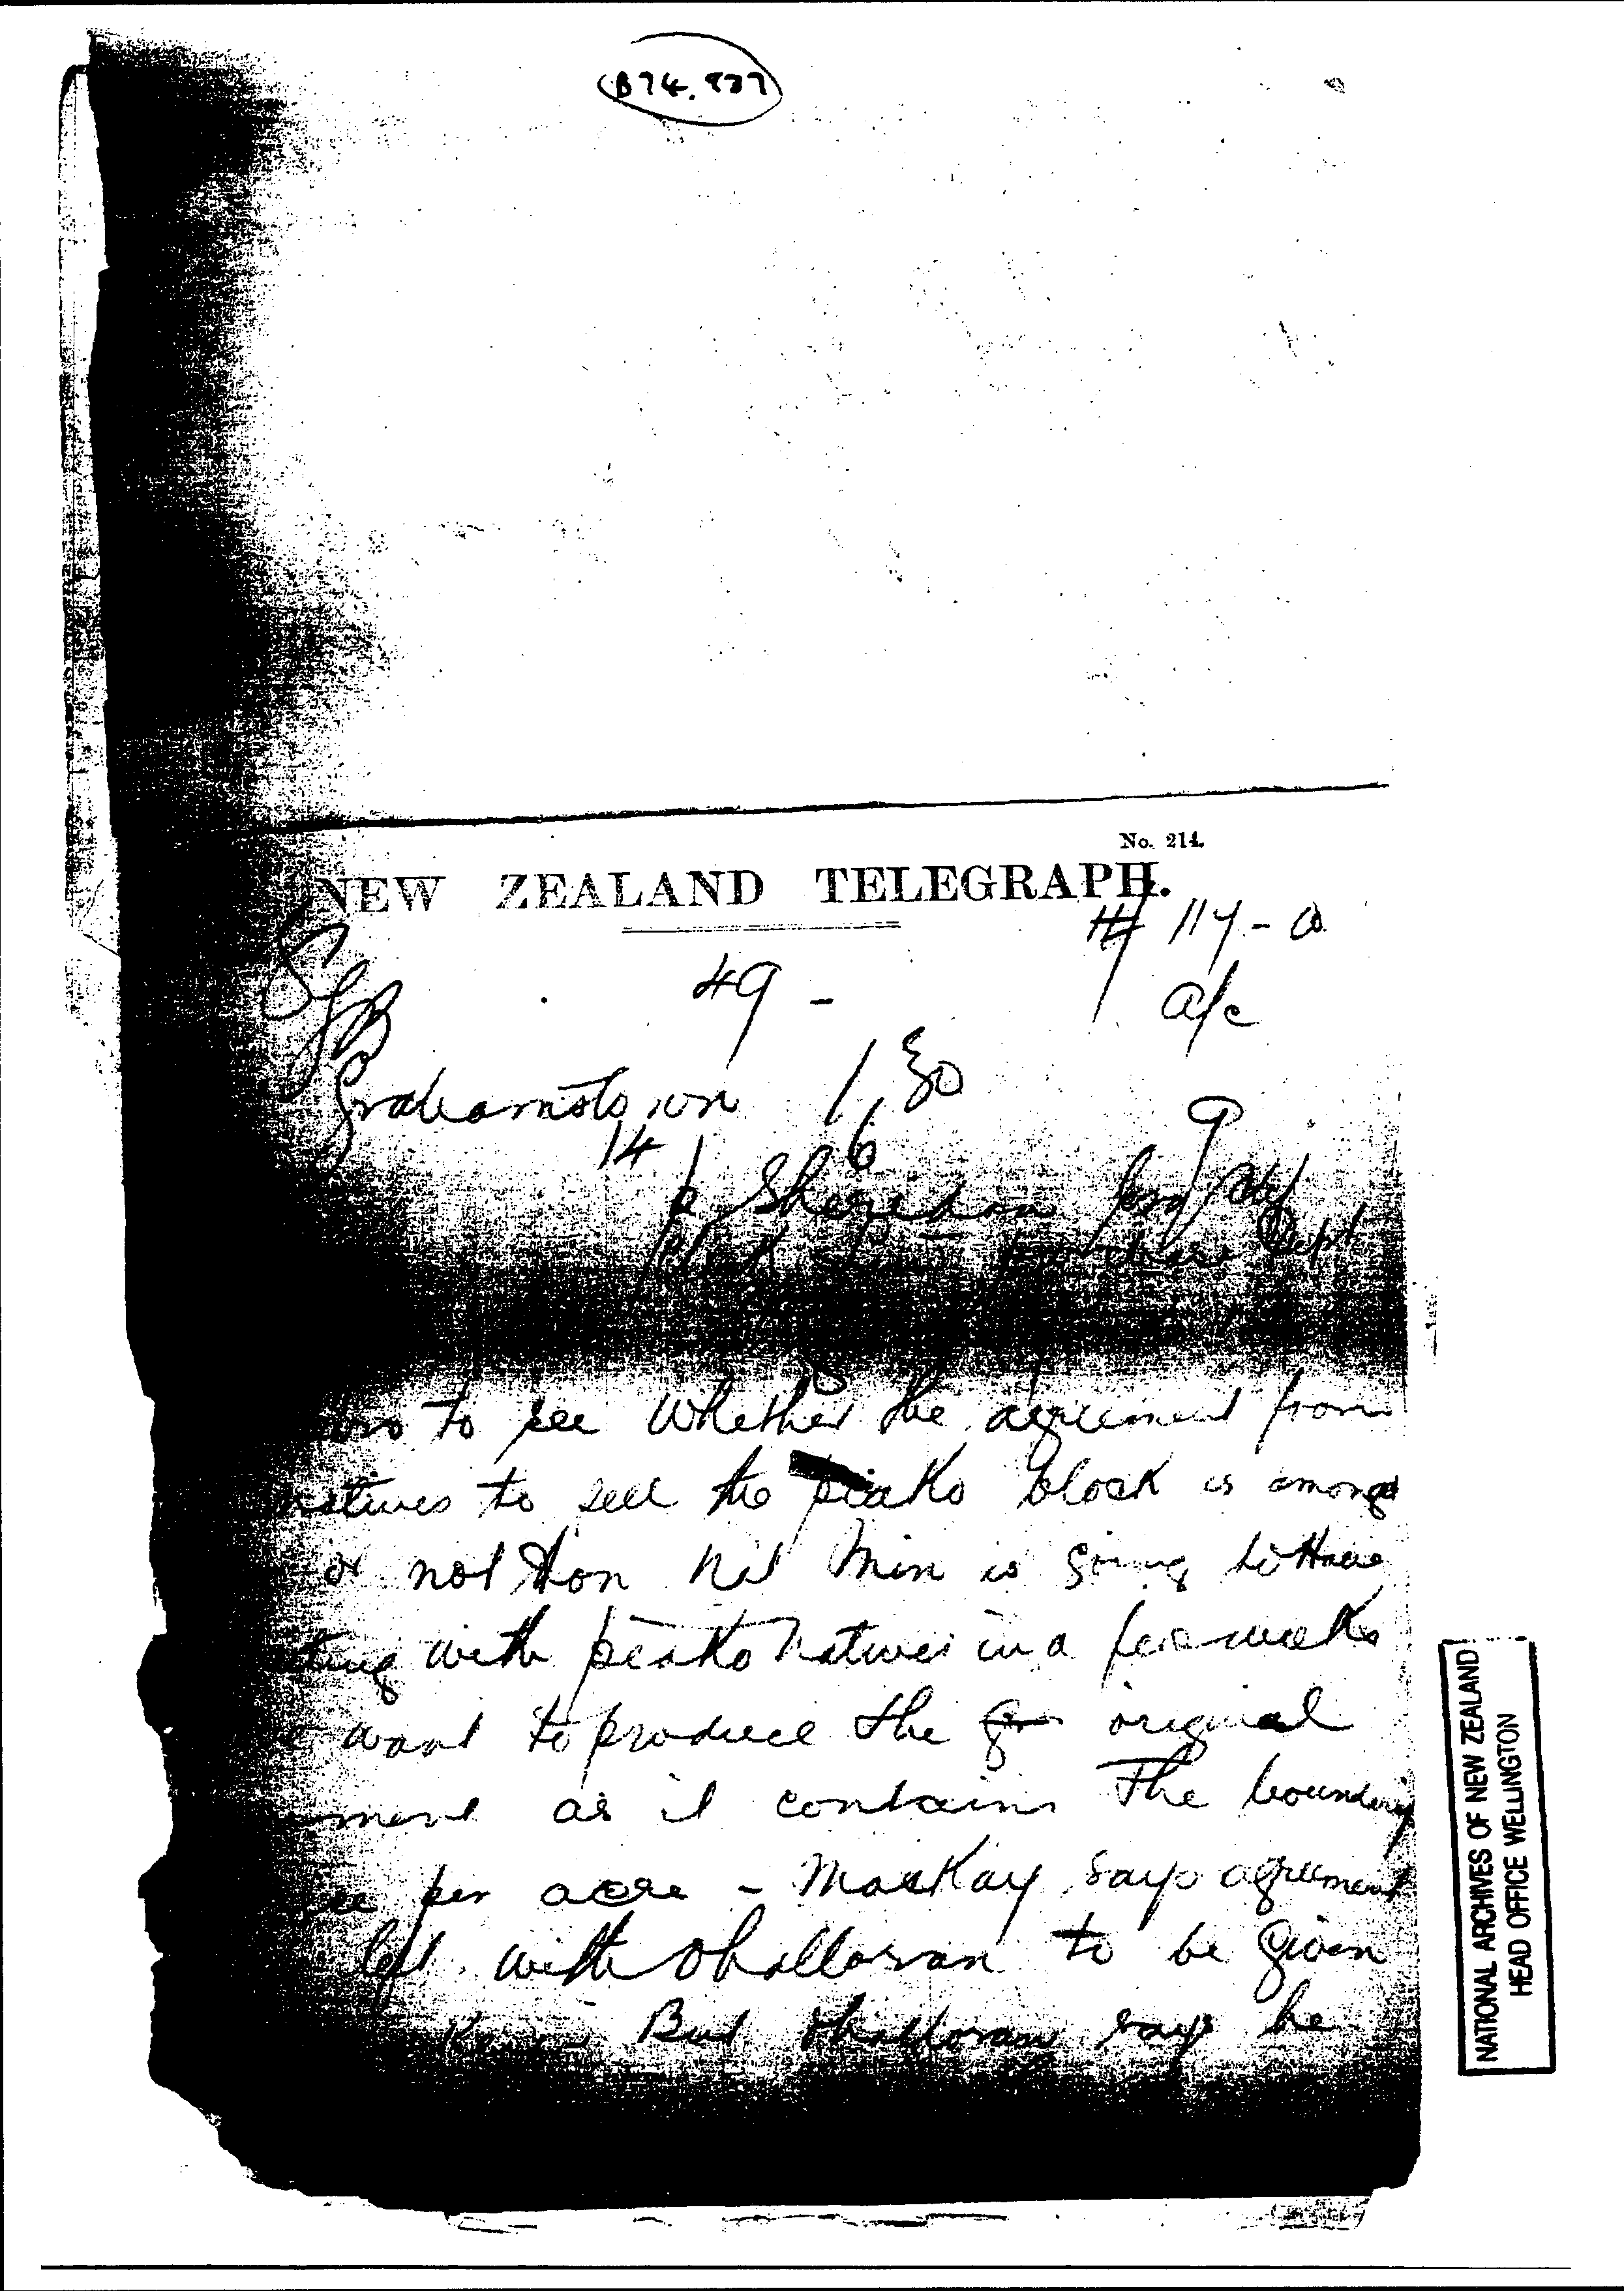 B74.837
No. 214.
NEW ZEALAND TELEGRAPH.
117 - 0
49 - a/c
Grahamstown 1,30
14 6 9
P Sheridan Esq
purchase Dept
to see whether the agreement from
natives to sell the piako block is among
or not Hon Nat Min is going to Have
ting with piako natives in a few weeks
want to produce the original
ment as it contains The boundary
per acre - MacKay says agreement
left with Ohalloran to be given
But Ohalloran says he
NATIONAL ARCHIVES OF NEW ZEALAND
HEAD OFFICE WELLINGTON